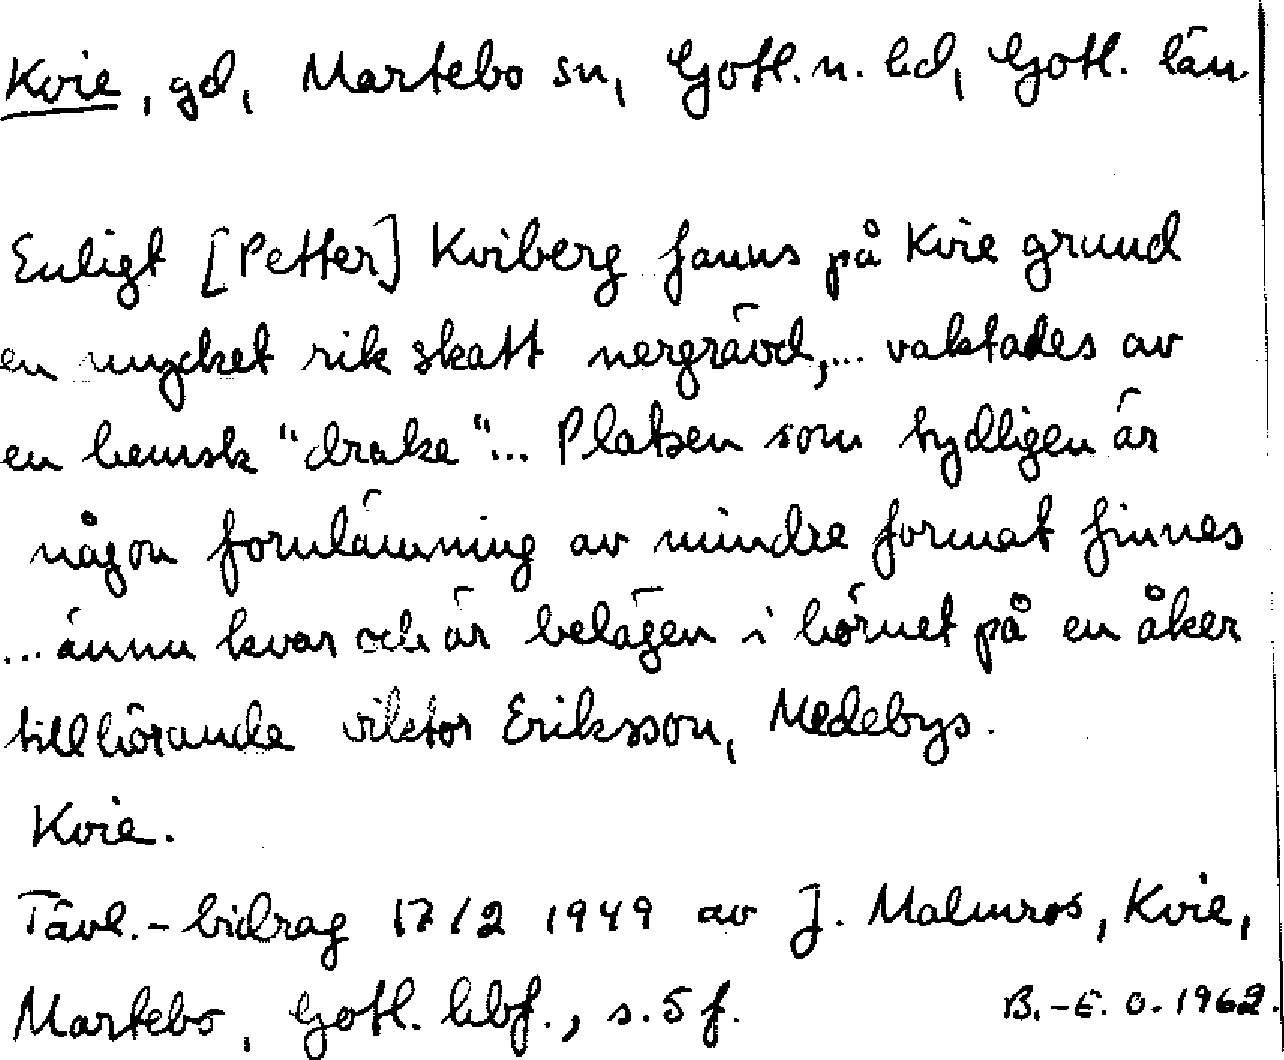 Kvie, gd, Martebo sn, Gotl. n. hd, Gotl. län
Enligt [Petter] Kviberg fanns på Kvie grund
en mycket rik skatt nergrävd,... vaktades av
en hemsk "drake"... Platsen som tydligen är
någon fornlämning av mindre format finnes
...ännu kvar och är belägen i hörnet på en åker
tillhörande Viktor Eriksson, Medebys.
Kvie.
Tävl.-bidrag 17/2 1949 av J. Malmros, Kvie,
Martebo, Gotl. hbf., s. 5 f.
B.-E. O. 1962.